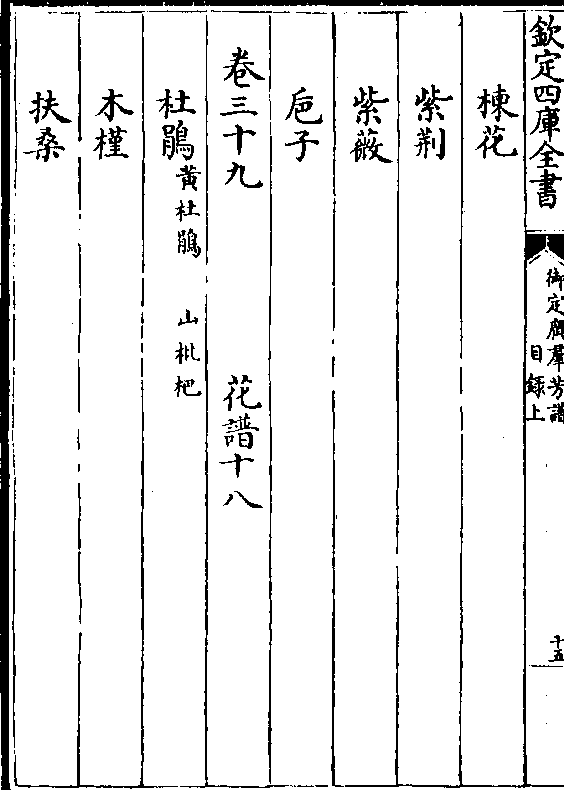 欽定四庫全書
御定廣羣芳譜
目録上
十五
楝花
紫荆
紫薇
巵子
卷三十九 花譜十八
杜鵑 黃杜鵑 山枇杷
木槿
扶桑